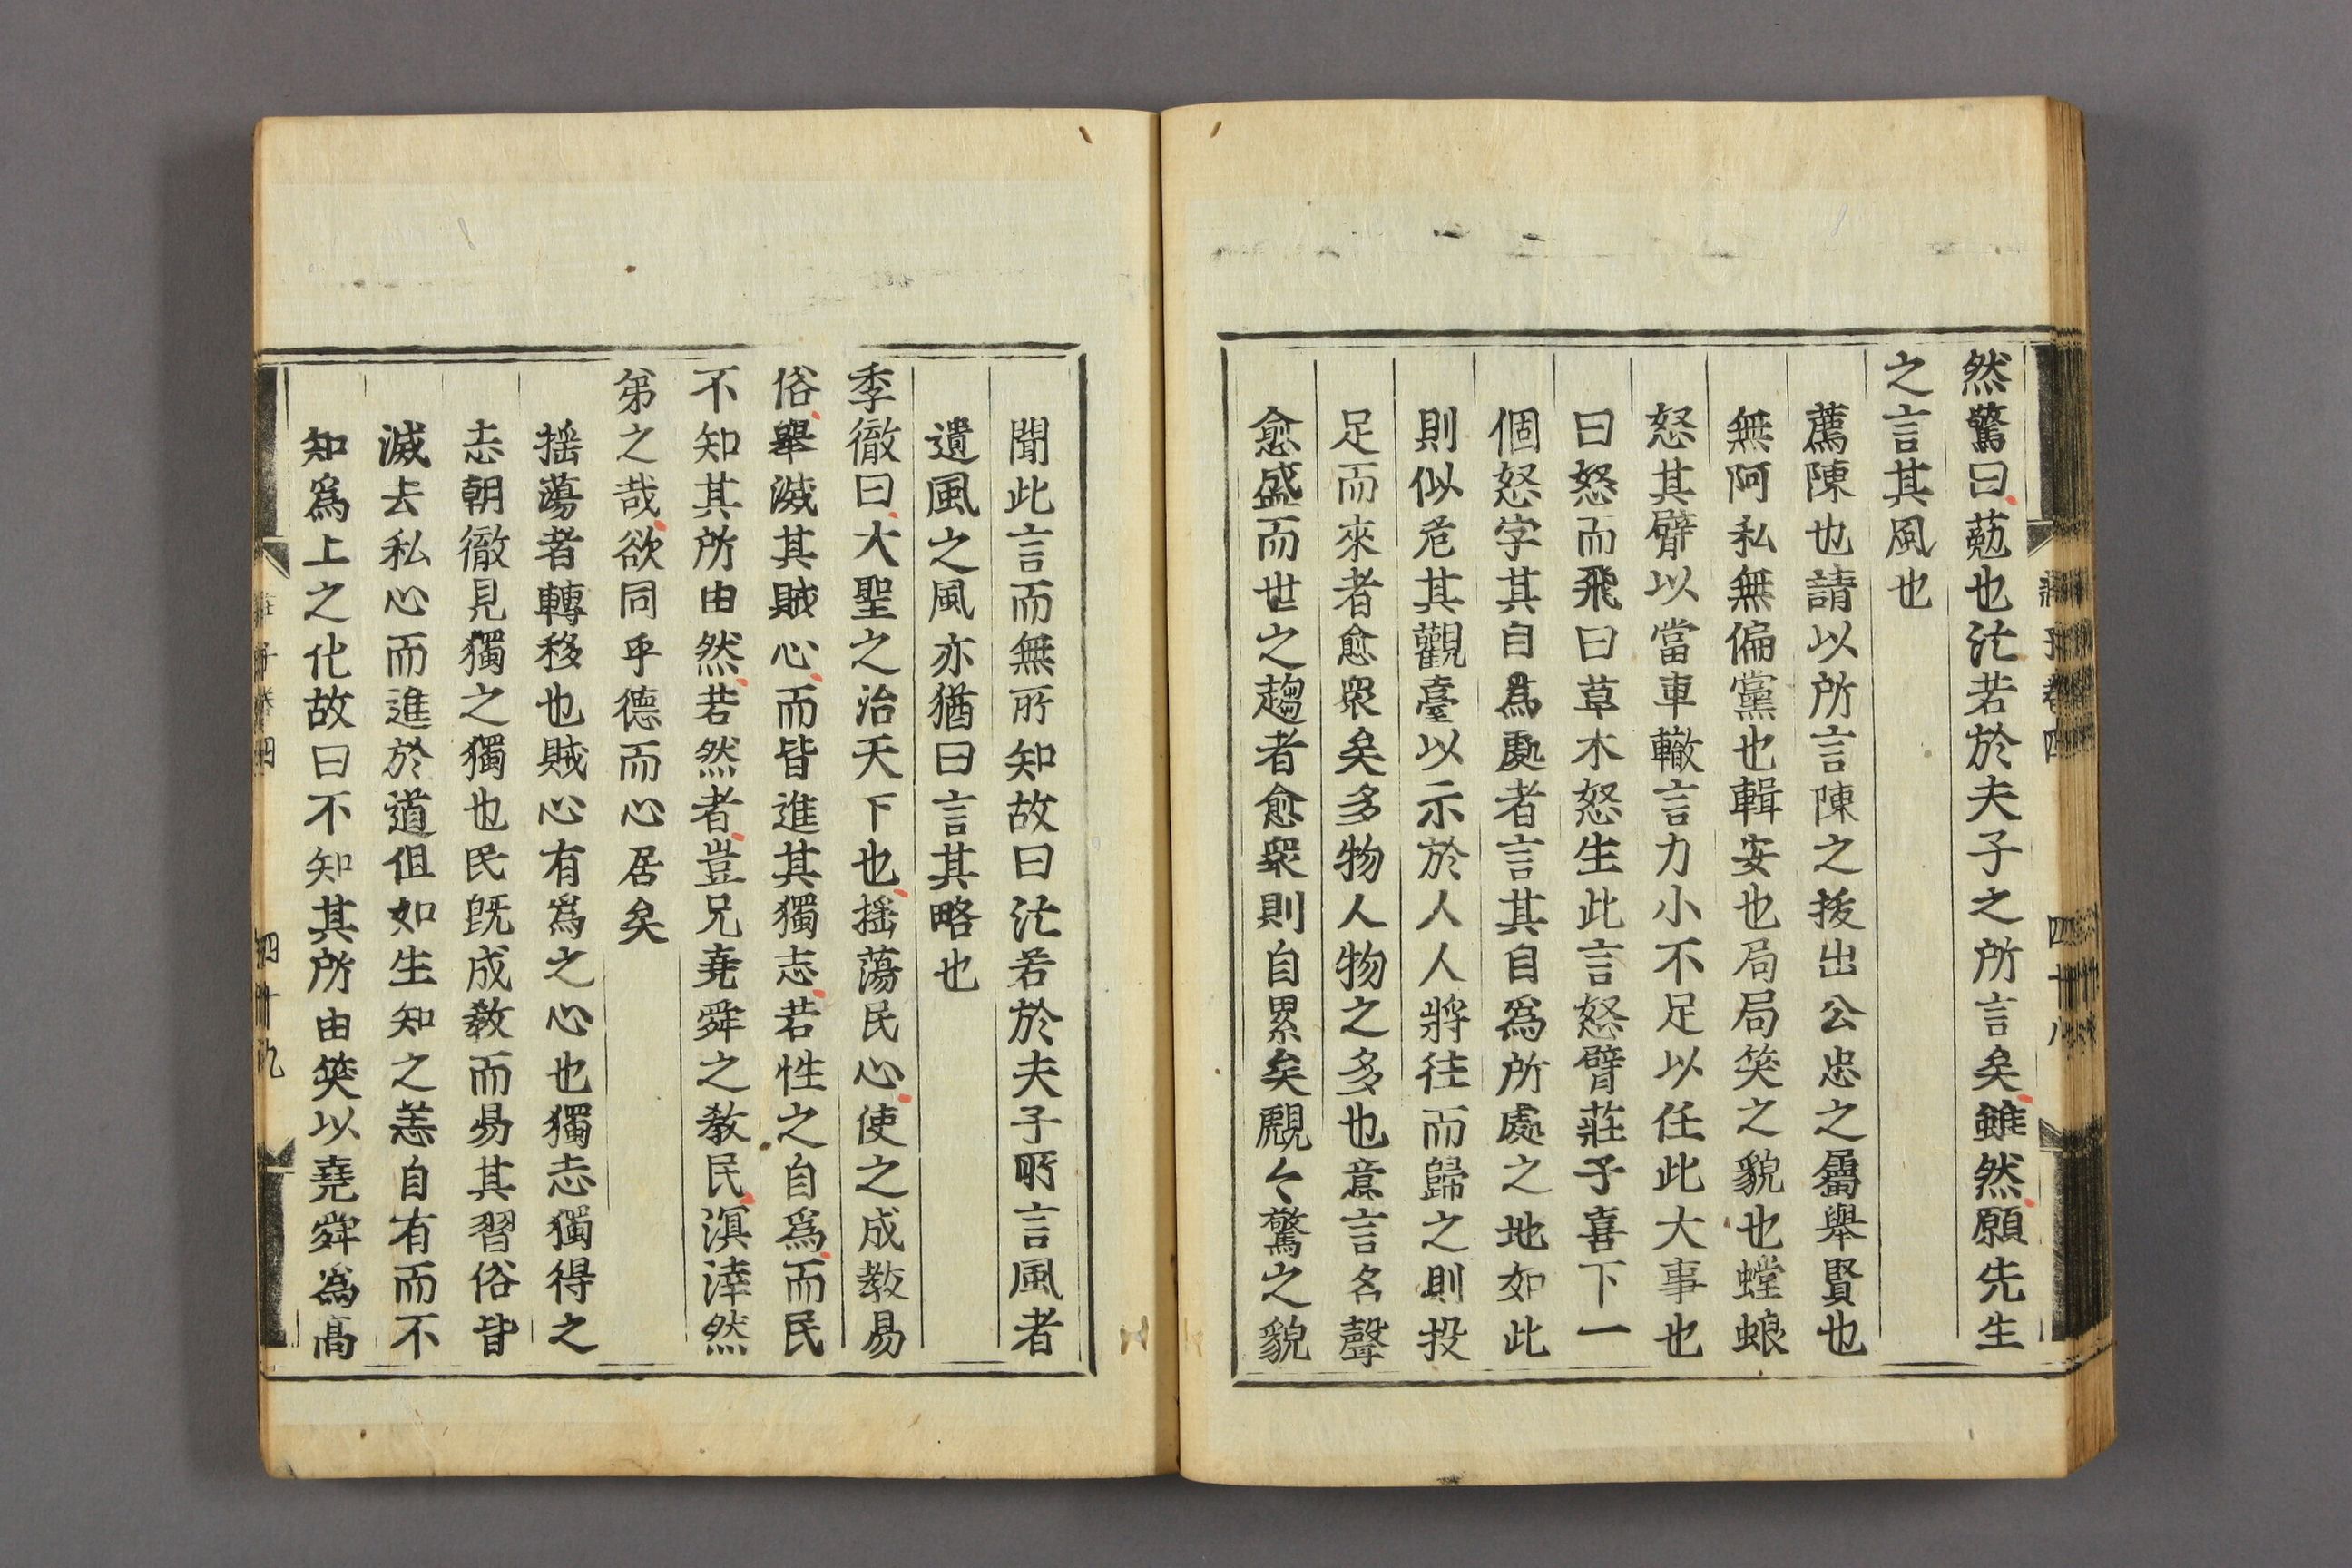 然驚曰葂也汒若於夫子之所言矣雖然願先生
之言其風也
薦陳也請以所言陳之拔出公忠之屬舉賢也
無阿私無偏黨也輯安也局局笑之貌也螳蜋
怒其臂以當車轍言力小不足以任此大事也
曰怒而飛曰草木怒生此言怒臂莊子喜下一
個怒字其自為處者言其自為所處之地如此
則似危其觀臺以示於人人將往而歸之則投
足而來者愈眾矣多物人物之多也意言名聲
愈盛而世之趨者愈眾則自累矣覤々驚之貌
聞此言而無所知故曰汒若於夫子所言風者
遺風之風亦猶曰言其略也
季徹曰大聖之治天下也搖蕩民心使之成教易
俗舉滅其賊心而皆進其獨志若性之自爲而民
不知其所由然若然者豈兄堯舜之教民溟涬然
弟之哉欲同乎德而心居矣
搖蕩者轉移也賊心有爲之心也獨志獨得之
志朝徹見獨之獨也民旣成教而易其習俗皆
滅去私心而進於道但如生知之恙自有而不
知爲上之化故曰不知其所由筴以堯舜爲高
莊子卷四
四十八
莊子卷四
四十九